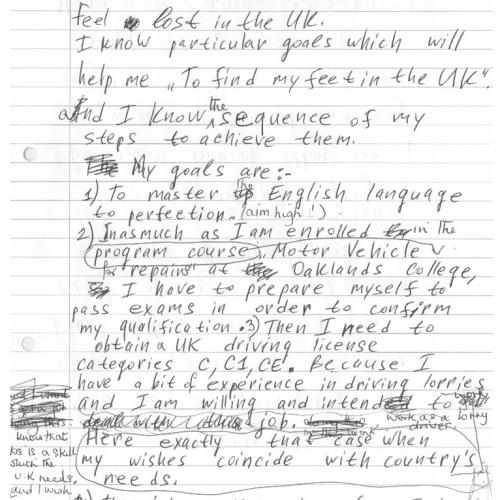 feel lost in the UK.
I know particular goals which will
help me „To find my feet in the UK".
And I know the sequence of my
steps to achieve them.
My goals are:-
1) To master the English language
to perfection. (aim high!).
2) Inasmuch as I am enrolled in the
program course „Motor Vehicle
for repairs" at Oaklands College,
I have to prepare myself to
pass exams in order to confirm
my qualification. 3) Then I need to
obtain a UK driving license
categories C, C1, CE. Because I
have a bit of experience in driving lorries
and I am willing and intend to
work as a lorry
driver.
job.
Here exactly that case when
my wishes coincide with country's
needs.
I know that
this is a skill
such the
U.K needs,
and I wish